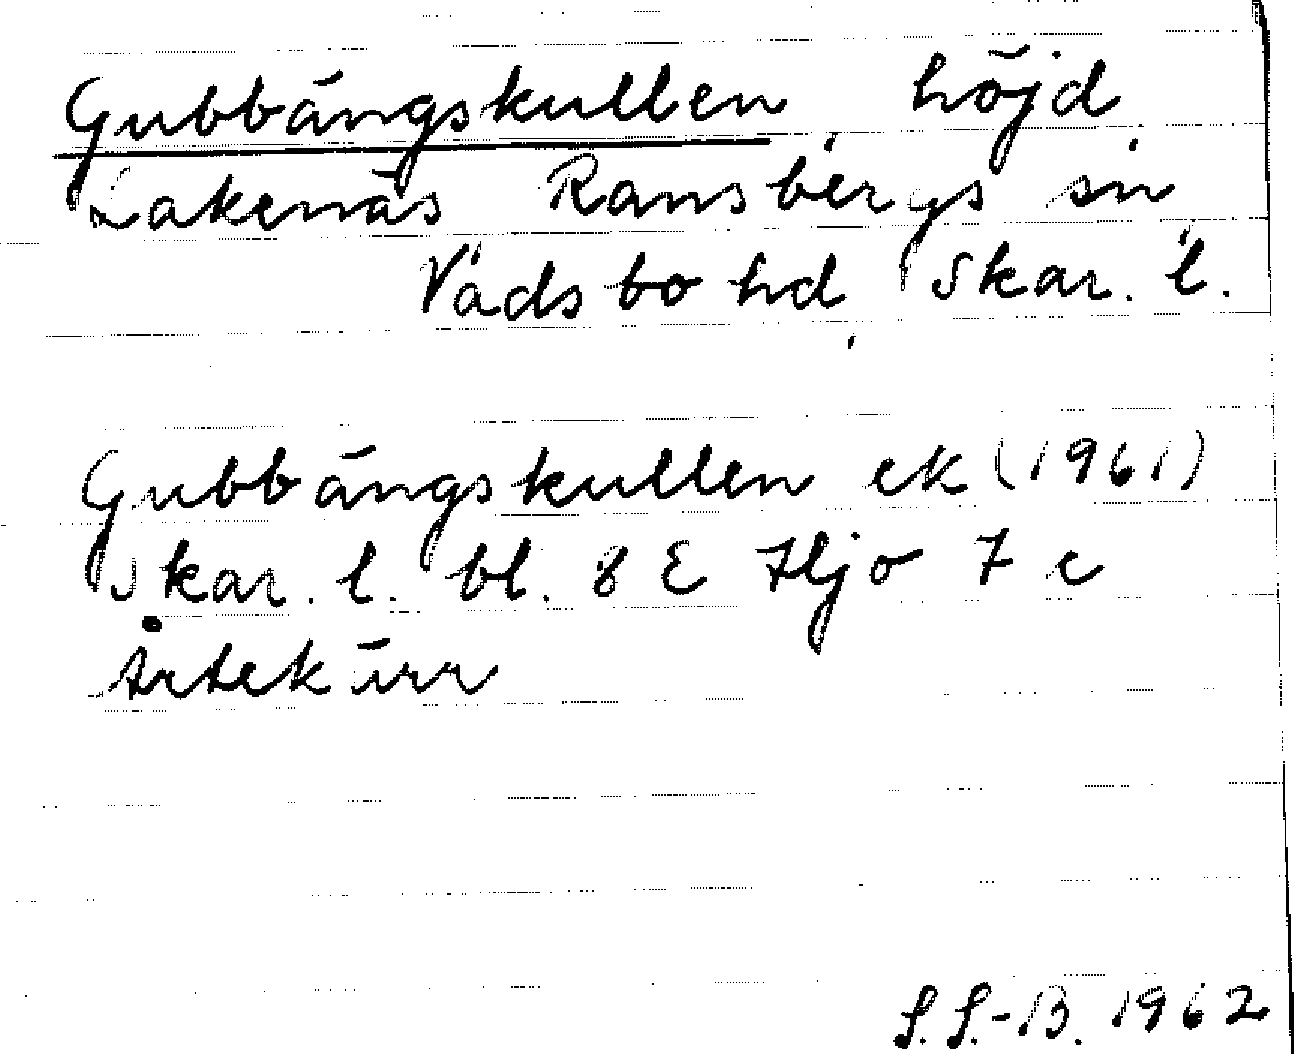 Gubbängskullen höjd
Lakenäs Ransbergs sn
Vadsbo hd Skar. l.
Gubbängskullen ek (1961)
Skar. l. bl. 8 E Hjo 7 c
Årtekärr
S.S.-B. 1962